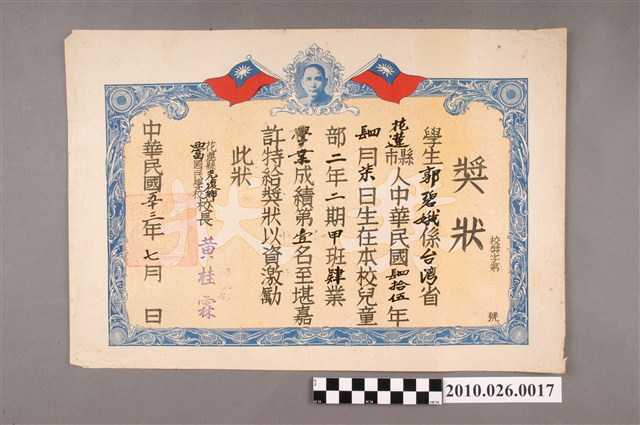 獎狀
校獎字第 號
學生郭碧娥係台灣省
花蓮縣市人中華民國肆拾伍年
肆月柒日生在本校兒童
部二年二期甲班肆業
學業成績第壹名至堪嘉
許特給獎狀以資激勵
此狀
花蓮縣光復鄉
國民學校校長 黃桂霖
中華民國五十三年七月 日
2010.026.0017